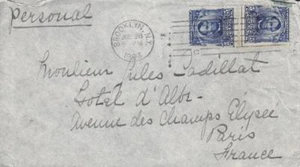 Personal
BROOKLYN, N.Y.
Monsieur Jules Cadillat
Hotel d'Albe
Avenue des Champs Elysee
Paris
France